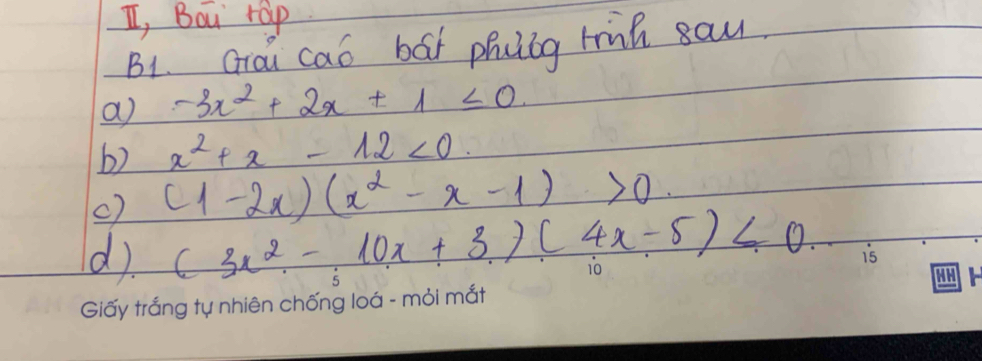 II, Bài tập
B1. Giải các bất phương trình sau.
a) -3x² + 2x + 1 < 0.
b) x² + x - 12 < 0.
c) (1 - 2x)(x² - x - 1) > 0.
d). (3x² - 10x + 3)(4x - 5) ≤ 0.
5 10 15
Giấy trắng tự nhiên chống loá - mỏi mắt
HH H